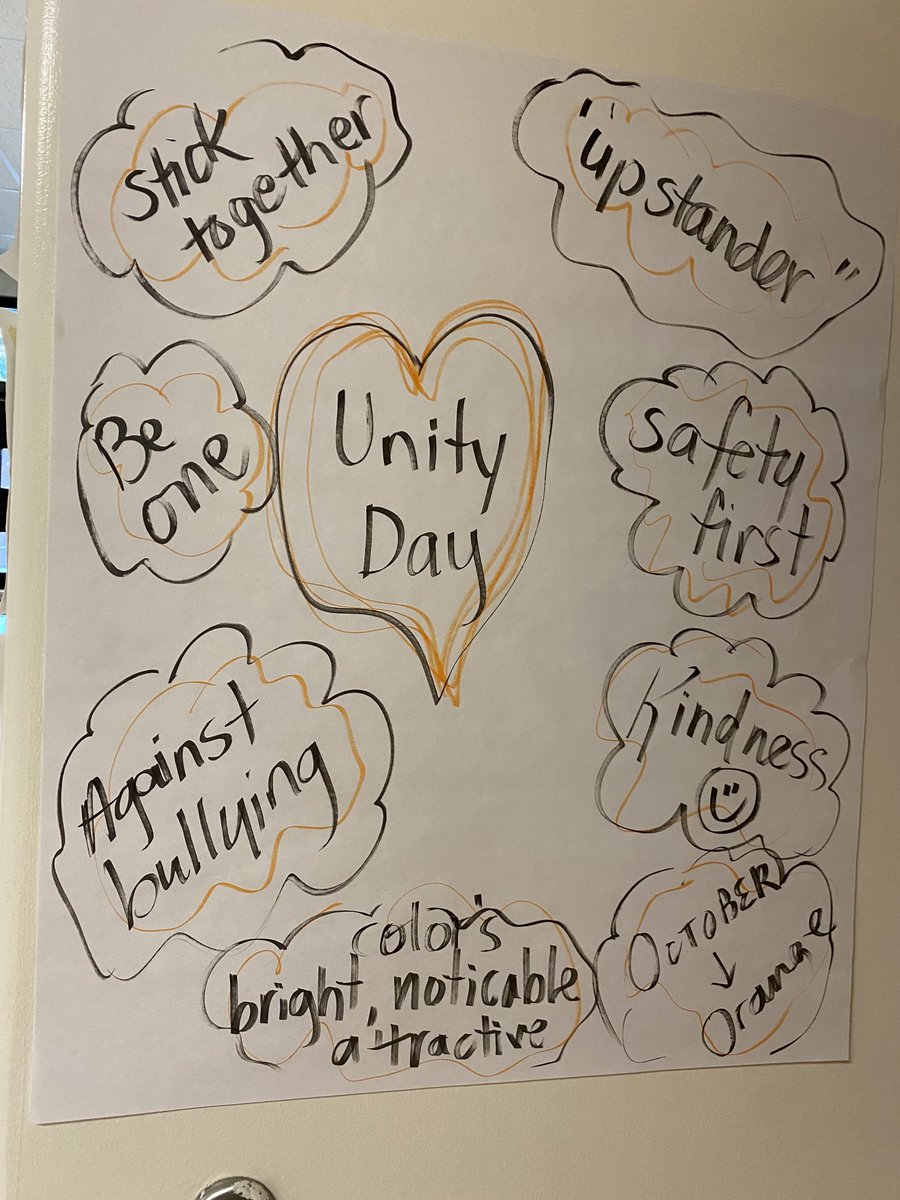 Stick
together
"upstander"
Be
one
Unity
Day
Safety
first
Against
bullying
Kindness
color's
bright, noticable
attractive
OCTOBER
↓
Orange